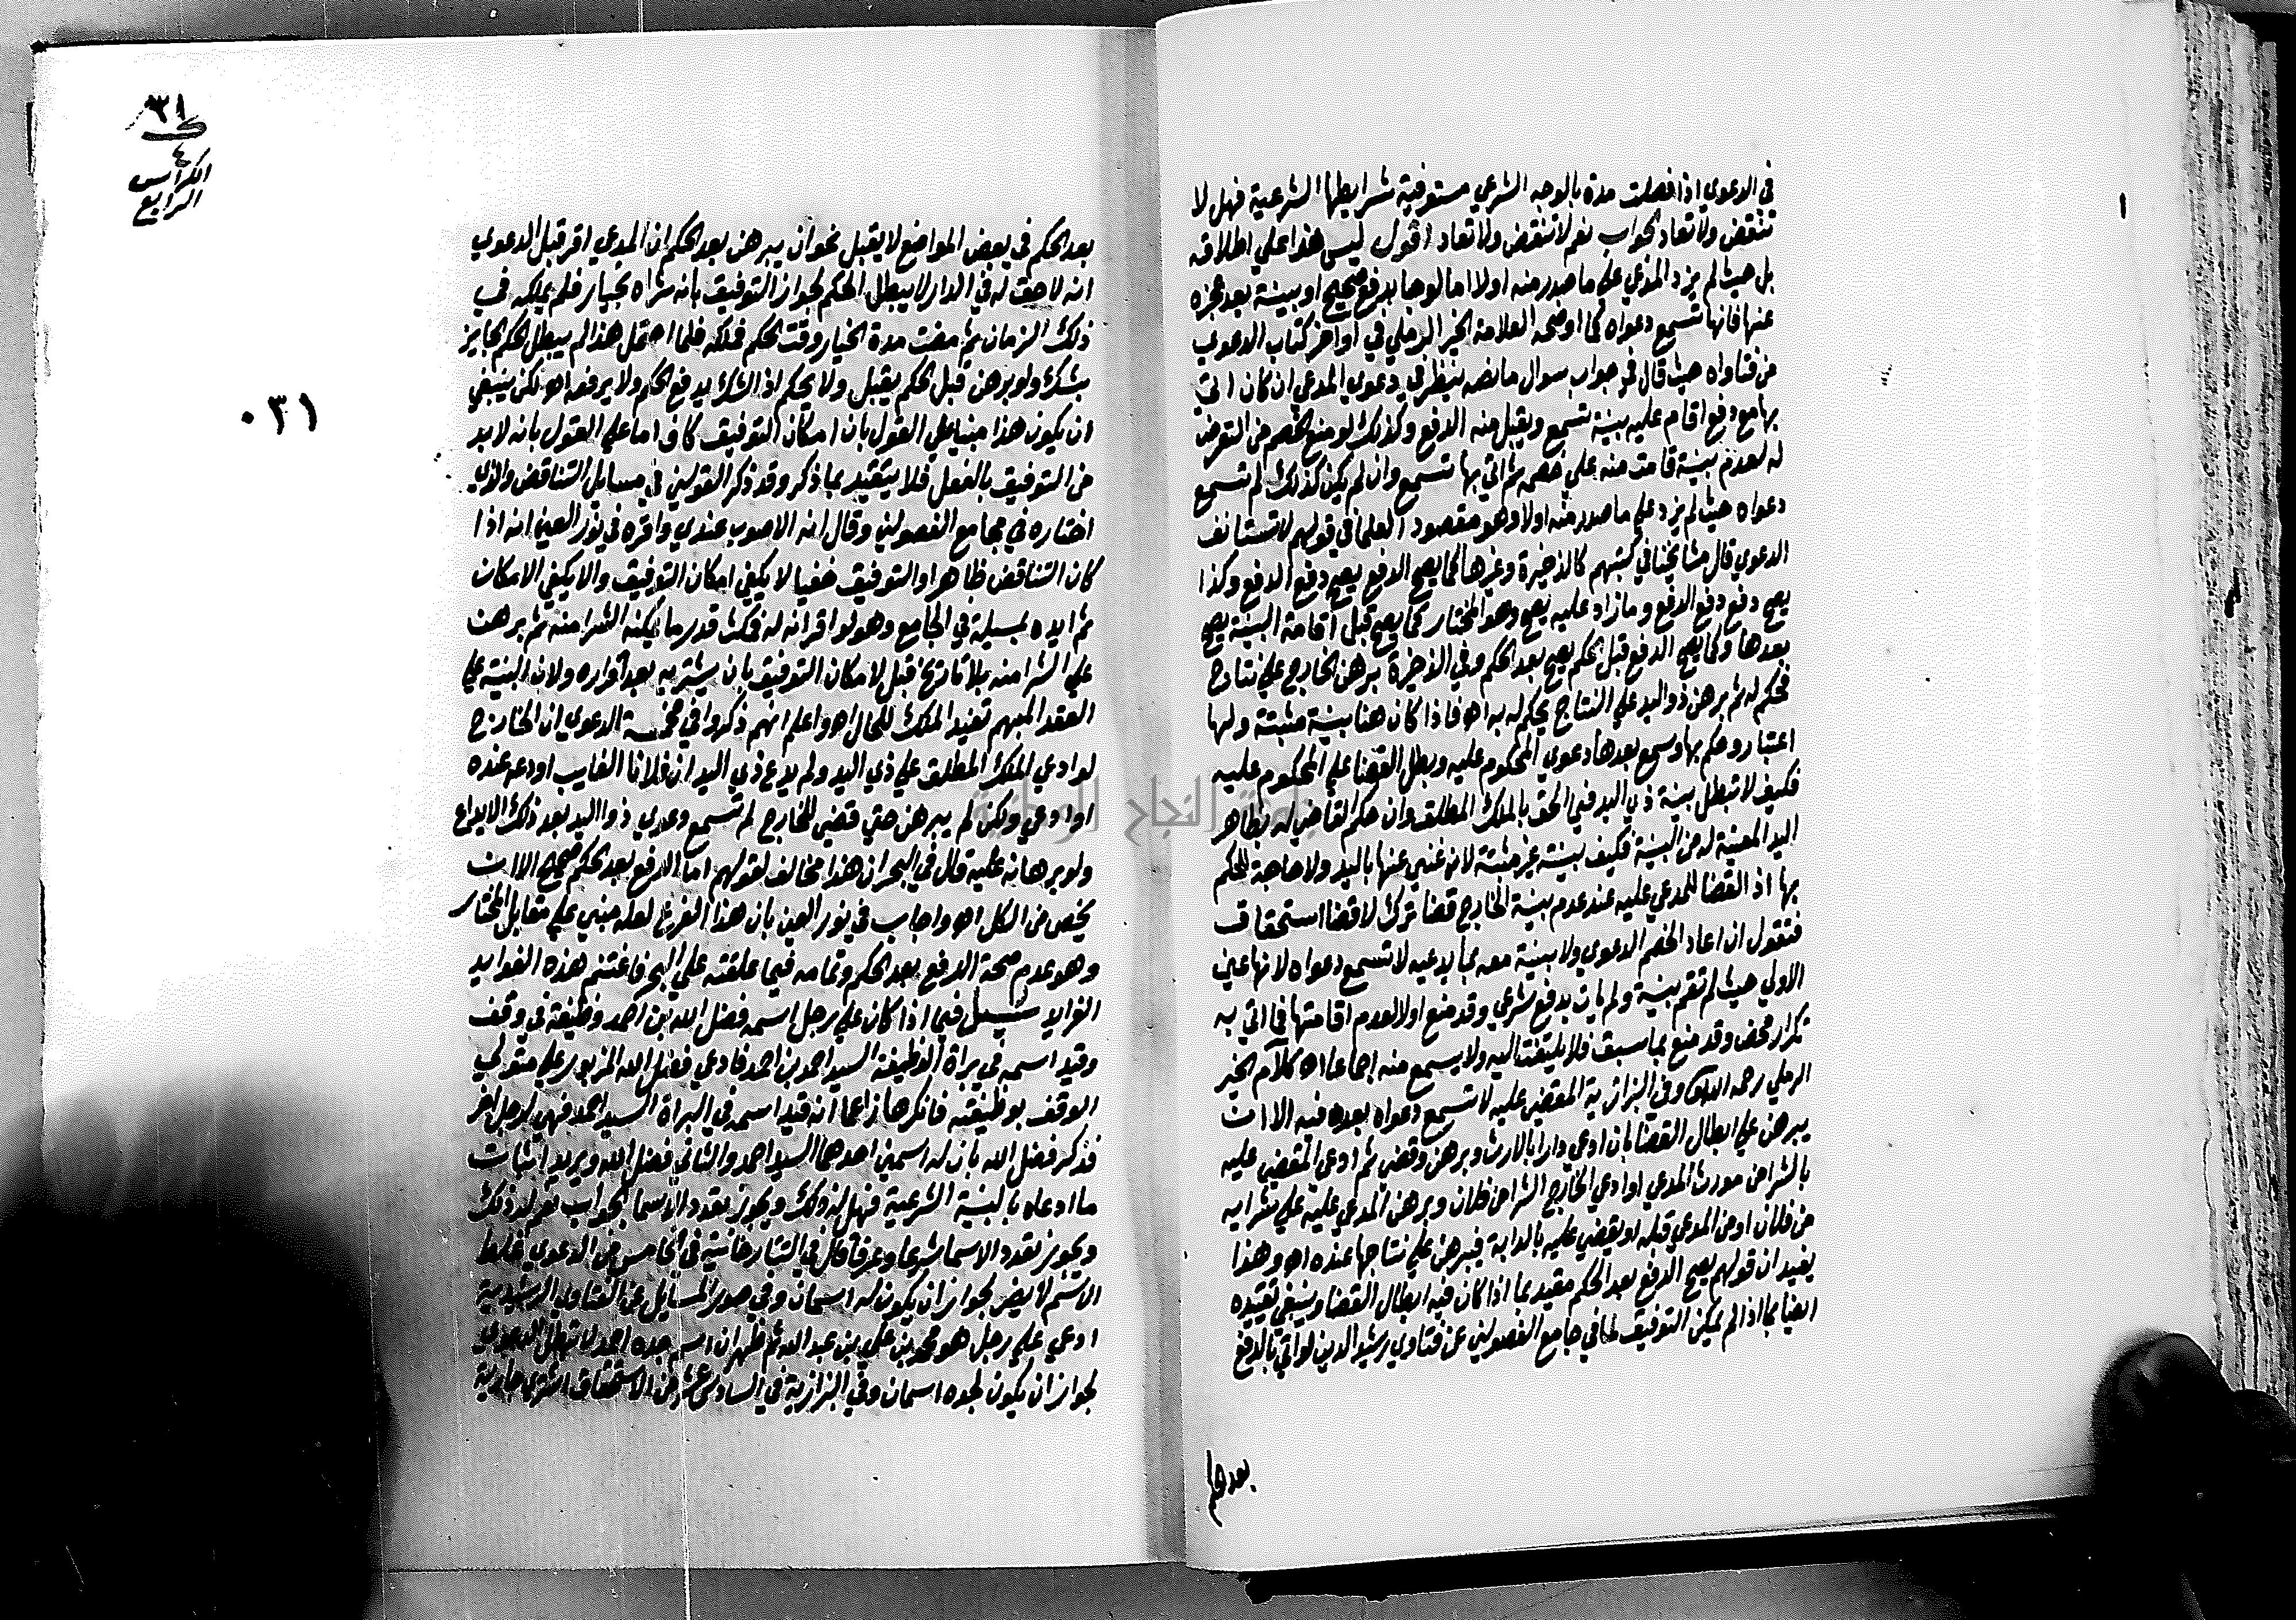 في الدعوي اذا فصلت مدة بالوجه الشرعي مستوفية شرايطها الشرعية فهل لا
تنتقض ولا تعاد الجواب نعم لا تنتقض ولا تعاد اقول ليس هذا علي اطلاقه
بل حيث لم يزد المدعي علي ما صدر منه اولا اما لو جا بدفع صحيح او بينة بعد عجزه
عنها فانها تسمع دعواه كما اوضحه العلامة الخير الرملي في اواخر كتاب الدعوي
من فتاواه حيث قال في جواب سوال ما نصه ينظر في دعوي المدعي ان كان اتي
بها مع دفع اقام عليه بينة تسمع ويقبل منه الدفع وكذلك لو منع الخصم من التعرض
له لعدم بينة قامت منه علي خصمه ثم اتي بها تسمع وان لم يكن كذلك لم تسمع
دعواه حيث لم يزد علي ما صدر منه اولا وهو مقصود العلما في قولهم لا تستانف
الدعوي قال مشايخنا في كتبهم كالذخيرة وغيرها كما يصح الدفع يصح دفع الدفع وكذا
يصح دفع دفع الدفع وما زاد عليه يصح وهو المختار كما يصح قبل اقامة البينة يصح
بعدها وكما يصح الدفع قبل الحكم يصح بعد الحكم وفي الذخيرة برهن الخارج علي نتاج
فحكم له ثم برهن ذو اليد علي النتاج يحكم له به اه فاذا كان هنا بينة مثبتة ولها
اعتبار وحكم بها وسمع بعدها دعوي المحكوم عليه وبطل القضا علي المحكوم عليه
فكيف لا تبطل بينة ذي اليد في الحق بالملك المطلق وان حكم القاضي له بظاهر
اليد المغنية له من البينة فكيف ببينة غير مثبتة لانه غني عنها باليد ولا حاجة للحكم
بها اذ القضا للمدعي عليه عند عدم بينة الخارج قضا ترك لا قضا استحقاق
فتقول ان اعاد الخصم الدعوي ولا بينة معه بما يدعيه لا تسمع دعواه لانها عين
الاولي حيث لم تقم بينة ولم يات بدفع شرعي وقد منع اولا لعدم اقامتها فما اتي به
تكرار محض وقد منع بما سبق فلا يلتفت اليه ولا يسمع منه اجماعا اه كلام الخير
الرملي رحمه الله وفي البزازية المقضي عليه لا تسمع دعواه بعده فيه الا ان
يبرهن علي ابطال القضا بان ادعي دارا بالارث وبرهن وقضي ثم ادعي المقضي عليه
بالشرا من مورث المدعي او ادعي الخارج الشرا من فلان وبرهن المدعي عليه علي شرايه
من فلان او من المدعي قبله او يقضي عليه بالدابة فيبرهن علي نتاجها عنده اه وهذا
يفيد ان قولهم يصح الدفع بعد الحكم مقيد بما اذا كان فيه ابطال القضا وينبغي تقييده
ايضا بما اذا لم يمكن التوفيق لما في جامع الفصولين عن فتاوي رشيد الدين لو اتي بالدفع
بعد الحكم
بعد الحكم في بعض المواضع لا يقبل نحو ان يبرهن بعد الحكم ان المدعي اقر قبل الدعوي
انه لا حق له في الدار لا يبطل الحكم لجواز التوفيق بانه شراه بخيار فلم يملكه في
ذلك الزمان ثم مضت مدة الخيار وقت الحكم فملكه فلما احتمل هذا لم يبطل الحكم الجايز
بشك ولو برهن قبل الحكم يقبل ولا يحكم اذ الشك يدفع الحكم ولا يرفعه اه لكن ينبغي
ان يكون هذا مبنيا علي القول بان امكان التوفيق كاف اما علي القول بانه لا بد
من التوفيق بالفعل فلا يتقيد بما ذكر وقد ذكر القولين في مسايل التناقض والذي
اختاره في جامع الفصولين وقال انه الاصوب عندي واقره في نور العين انه اذا
كان التناقض ظاهرا والتوفيق خفيا لا يكفي امكان التوفيق والا يكفي الامكان
ثم ايده بمسيلة في الجامع وهو لو اقر انه له فمكث قدر ما يمكنه الشرا منه ثم برهن
علي الشرا منه بلا تاريخ قبل لامكان التوفيق بان يشتريه بعد اقراره ولان البينة علي
العقد المبهم تفيد الملك للحال اه واعلم انهم ذكروا في مخمسة الدعوي ان الخارج
لو ادعي الملك المطلق علي ذي اليد ولم يدع ذي اليد ان فلانا الغايب اودعه عنده
او ادعي ولكن لم يبرهن حتي قضي للخارج لم تسمع دعوي ذو اليد بعد ذلك الايداع
ولو برهانه عليه قال في البحر ان هذا مخالف لقولهم اما الدفع بعد الحكم صحيح الا ان
يخص من الكل اه واجاب في نور العين بان هذا الفرع لعله مبني علي مقابل المختار
وهو عدم صحة الدفع بعد الحكم وتمامه فيما علقته علي البحر فاغتنم هذه الفوايد
الفرايد سيل فيما اذا كان علي رجل اسمه فضل الله بن احمد وظيفة في وقف
وقيد اسمه في براة الوظيفة السيد احمد بن احمد فادعي فضل الله المزبور علي متولي
الوقف بوظيفته فانكرها زاعما انه قيد اسمه في البراة السيد احمد فهي لرجل اخر
فذكر فضل الله بان له اسمين احدهما السيد احمد والثاني فضل الله ويريد اثبات
ما ادعاه بالبينة الشرعية فهل له ذلك ويجوز تعدد الاسما الجواب نعم له ذلك
ويجوز تعدد الاسما شرعا وعرفا قال في التتارخانية في الخامس من الدعوي غلط
الاسم لا يضر لجواز ان يكون له اسمان وفي صور المسايل عن الفتاوي الرشيدية
ادعي علي رجل هو محمد بن علي بن عبد الله ثم ظهر ان اسم جده احمد لا تبطل الدعوي
لجواز ان يكون لجده اسمان وفي البزازية في السادس عشر من الاستحقاق اشتري جارية
٣١
ك
٤
الكراس
الرابع
٠٣١
١
جامعة النجاح الوطنية